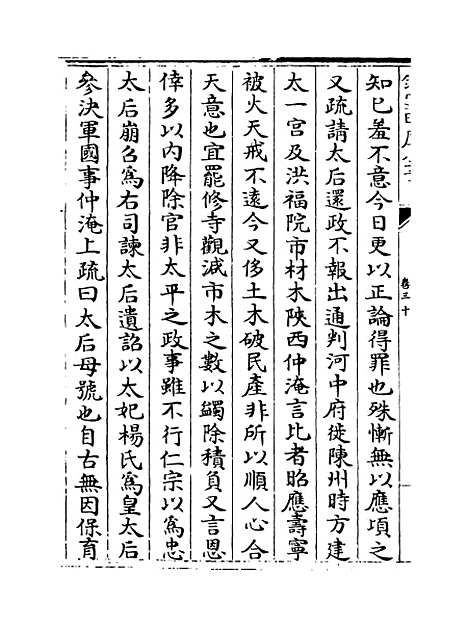 卷三十
知己羞不意今日更以正論得罪也殊慚無以應頃之
又疏請太后還政不報出通判河中府徙陳州時方建
太一宮及洪福院市材木陝西仲淹言比者昭應壽寧
被火天戒不遠今又侈土木破民產非所以順人心合
天意也宜罷修寺觀減市木之數以蠲除積負又言恩
倖多以內降除官非太平之政事雖不行仁宗以為忠
太后崩召為右司諫太后遺詔以太妃楊氏為皇太后
參決軍國事仲淹上疏曰太后母號也自古無因保育